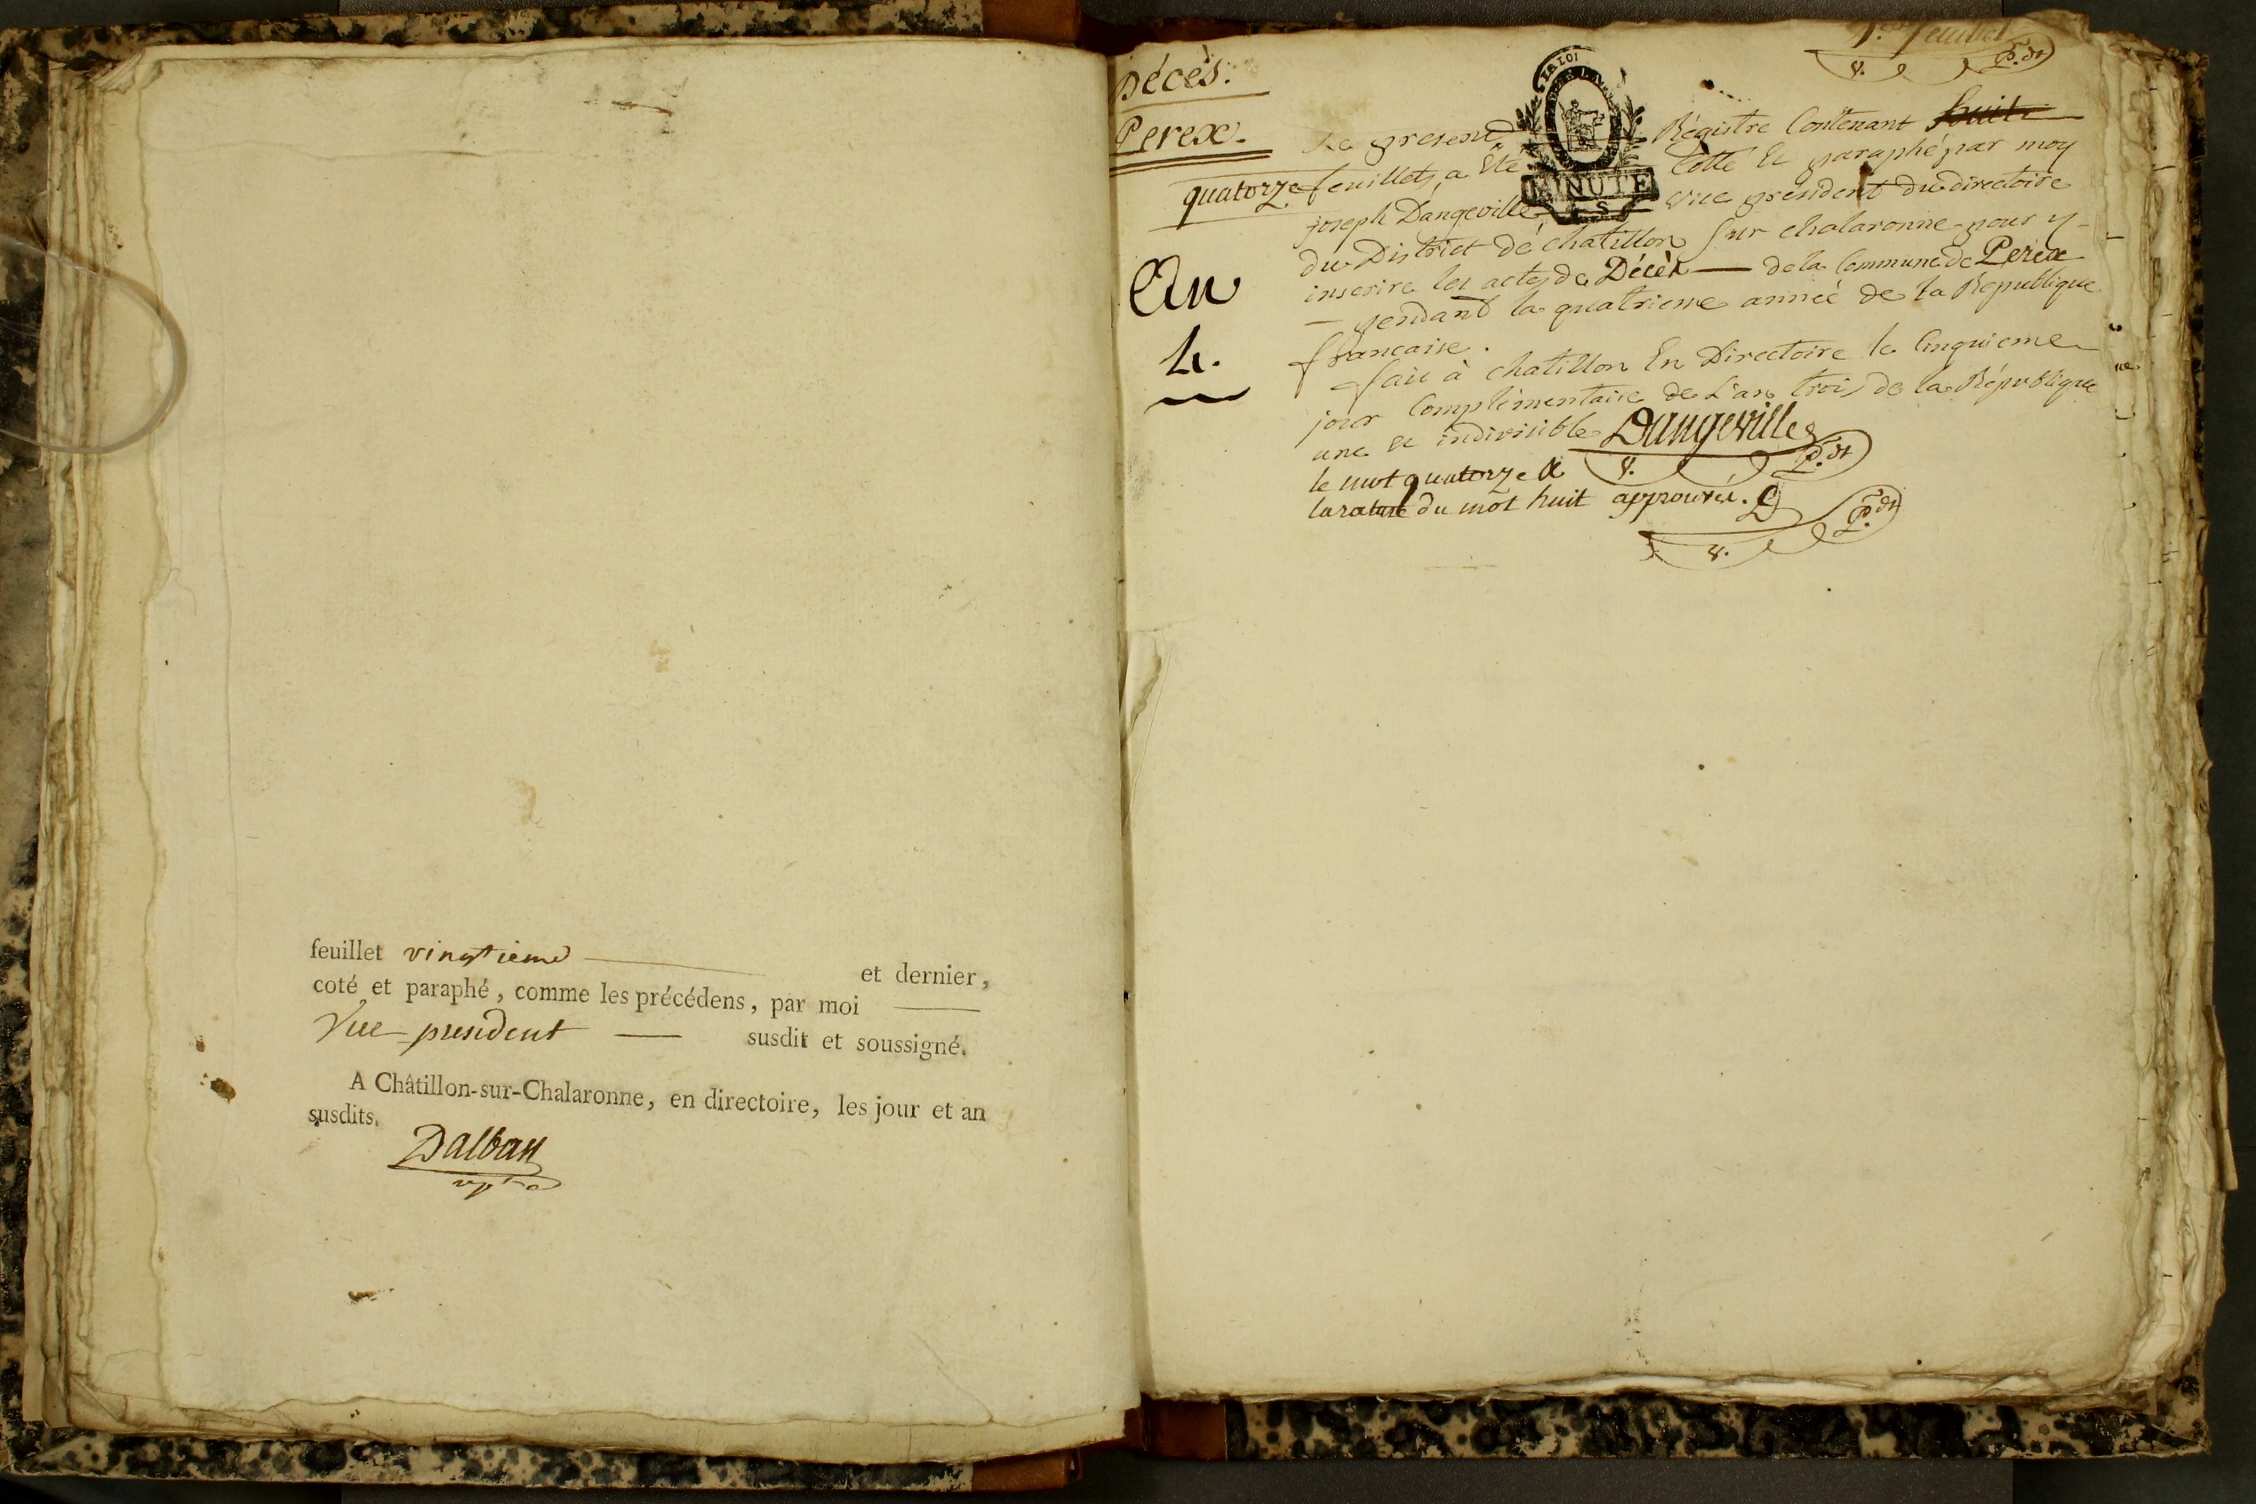 feuillet vingtieme et dernier,
coté et paraphé, comme les précédens, par moi
Vice president susdit et soussigné.
A Châtillon-sur-Chalaronne, en directoire, les jour et an
susdits.
Dalban
Décès.
Perex.
quatorze
An
4.
1.er feuillet
V. P.dt
LA LOI
MINUTE
Le present Régistre Contenant huit
feuillets, a Été Cotté Et paraphé par moy
joseph Dangeville Vice president du directoire
du District de chatillon sur chalaronne pour y
inscrire les actes de Décès de la Commune de Perex
pendant la quatrieme année de la Republique
francaise.
fait à chatillon En Directoire le Cinquieme
jour Complimentaire de L'an trois de la République
une et indivisible Dangeville
V. P.dt
le mot quatorze &
la rature du mot huit approuvés. D
V. P.dt